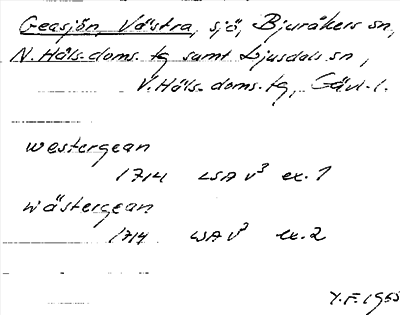 Geasjön, Västra, sjö, Bjuråkers sn,
N. Häls. doms. tg samt Ljusdals sn,
V. Häls. doms. tg, Gävl. l.
westergean
1714 LSA V³ ex. 1
wästergean
1714 LSA V³ ex. 2
Y.F. 1955